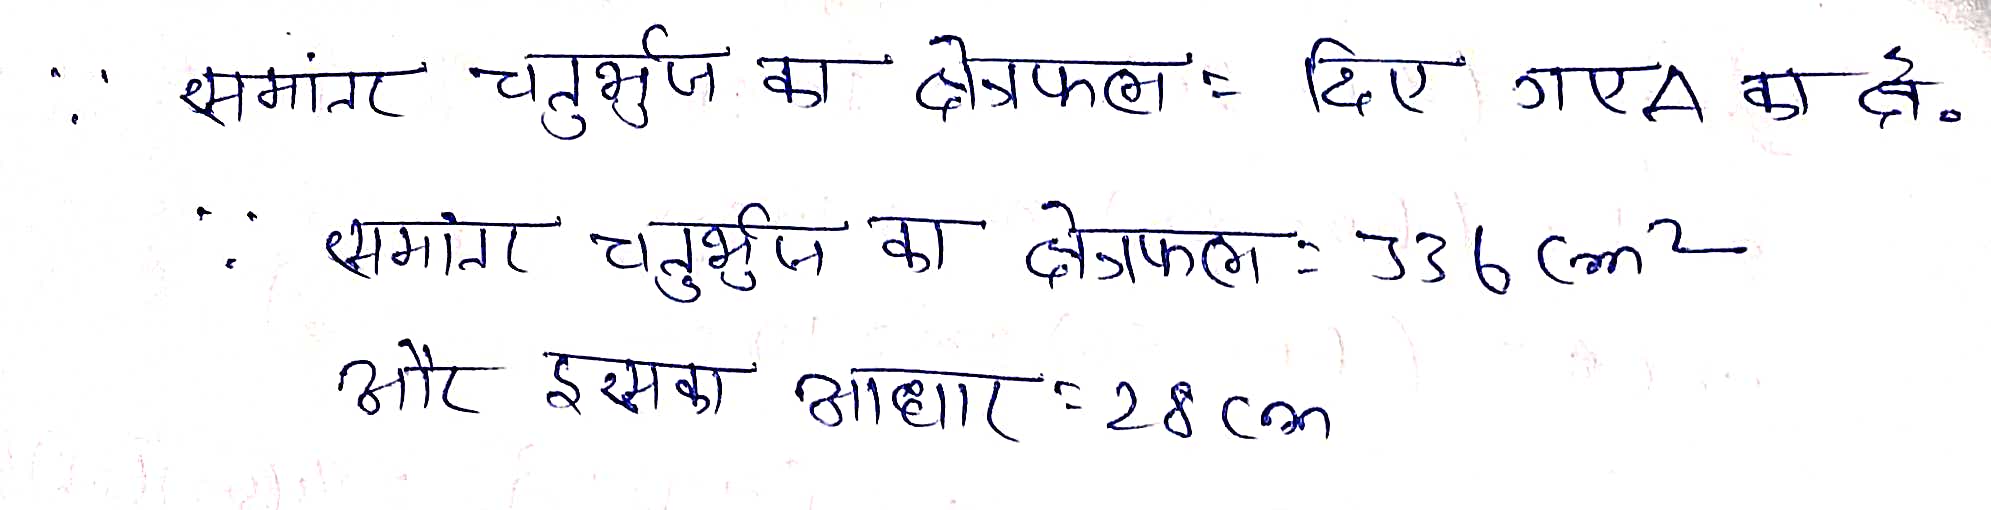 ∵ समांतर चतुर्भुज का क्षेत्रफल = दिए गए Δ का क्षे.
∵ समांतर चतुर्भुज का क्षेत्रफल = 336 cm²
और इसका आधार = 28 cm